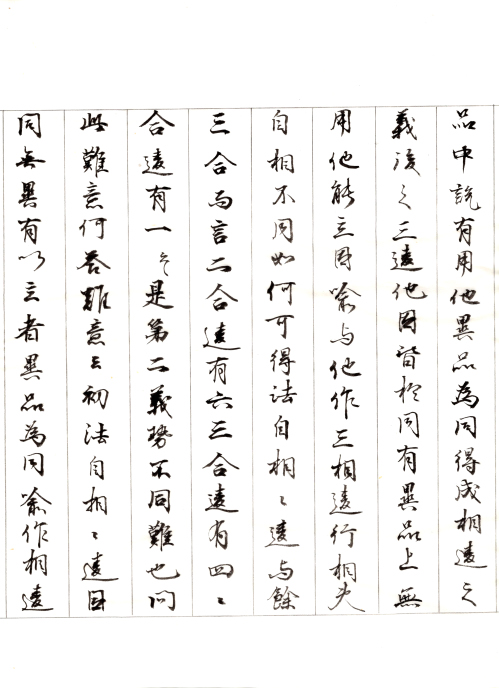 品中說有用他異品為同得成相違之
義後之三違他因皆於同有異品上無
用他能立因喻与他作三相違行相夫
自相不同如何可得法自相〻違与餘
三合而言二合違有六三合違有四〻
合違有一云是第二義勢不同難也問
此難意何答難意云初法自相〻違因
同無異有以立者異品為同喻作相違